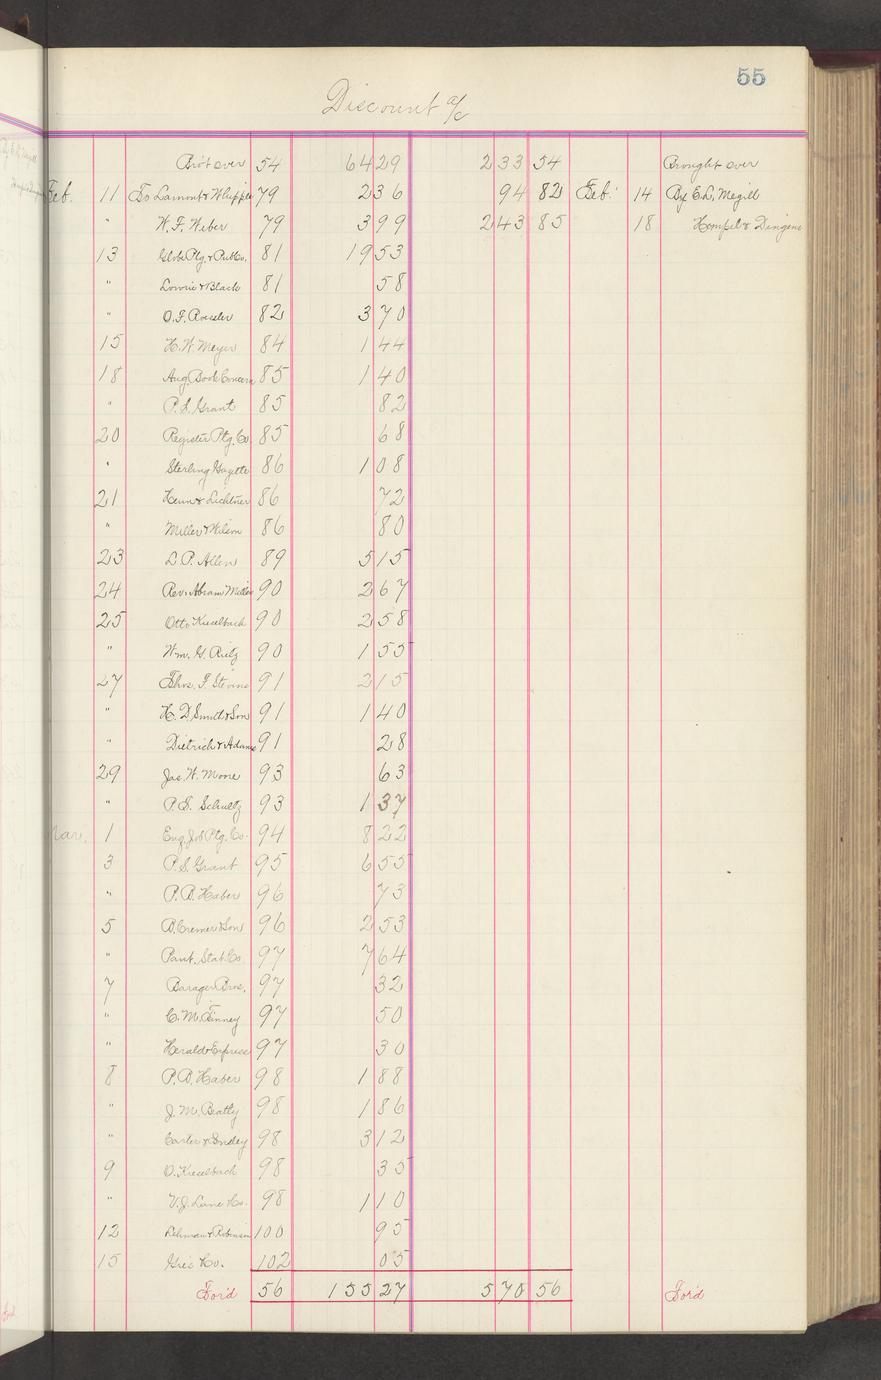 55
Discount a/c
Bro't over 54 64 29 2 33 54 Brought over
Feb. 11 To Lamont & Whipple 79 2 36 94 82 Feb. 14 By E.L. Megill
" W. F. Weber 79 3 99 2 43 85 18 Hempel & Dingens
13 Globe Ptg. & Pub Co. 81 19 53
" Lowrie & Black 81 58
" O. F. Roessler 82 3 70
15 H. W. Meyer 84 1 44
18 Aug. Book Concern 85 1 40
" P. S. Grant 85 82
20 Register Ptg. Co. 85 68
" Sterling Gazette 86 1 08
21 Henn & Lichtner 86 72
" Miller & Wilson 86 80
23 L. P. Allen 89 5 15
24 Rev. Abram Miller 90 2 67
25 Otto Kieselbach 90 2 58
" Wm. G. 90 1 55
27 Thos. F. Stevens 91 2 15
" H. D. Smith & Son 91 1 40
" Dietrich & Adams 91 28
29 Jas. W. Moore 93 63
" P. S. Schultz 93 1 37
Mar. 1 Eng. Job Ptg. Co. 94 8 22
3 P. S. Grant 95 6 55
" P. B. Haber 96 73
5 B. Cremer & Son 96 2 53
" Pant. Stat. Co. 97 7 64
7 Barager Bros. 97 32
" C. M. Finney 97 50
" Herald & Express 97 30
8 P. B. Haber 98 1 88
" J. M. Beatty 98 1 86
" Carter & 98 3 12
9 O. Kieselbach 98 35
" V. J. Lane Co. 98 1 10
12 Lehman & Robinson 100 95
15 Co. 102 05
For'd 56 1 55 27 5 70 56 For'd